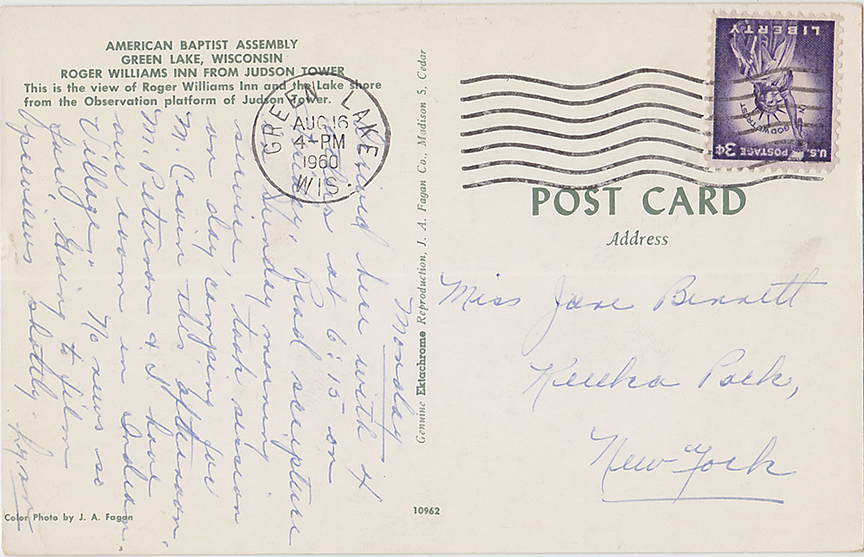 AMERICAN BAPTIST ASSEMBLY
GREEN LAKE, WISCONSIN
ROGER WILLIAMS INN FROM JUDSON TOWER
This is the view of Roger Williams Inn and the Lake shore
from the Observation platform of Judson Tower.
GREEN LAKE
AUG 16
4-PM
1960
WIS.
LIBERTY
IN GOD WE TRUST
U.S. POSTAGE 3¢
POST CARD
Address
Miss Jane Bennett
Keuka Park,
New York
Monday
Arrived here with 4
at 6:15 on
Read scripture
Sunday morning
service, took session
on day camping for
M. Cain this afternoon.
M. Peterson & I have
our room in Indian
Village. No news so
far. Going to film
previews shortly.
Genuine Ektachrome Reproduction, J. A. Fagan Co., Madison 5, Cedar
Color Photo by J. A. Fagan
10962